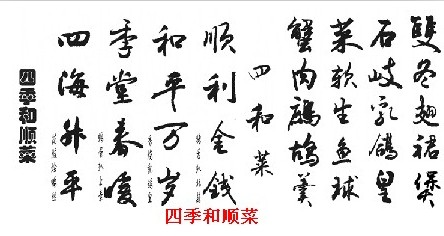 雙冬翅裙煲
石岐乳鴿皇
菜软生鱼球
蟹肉鹧鸪羹
四和菜
順利金钱
和平万岁
季堂春暖
四海升平
四季和顺菜
四季和顺菜